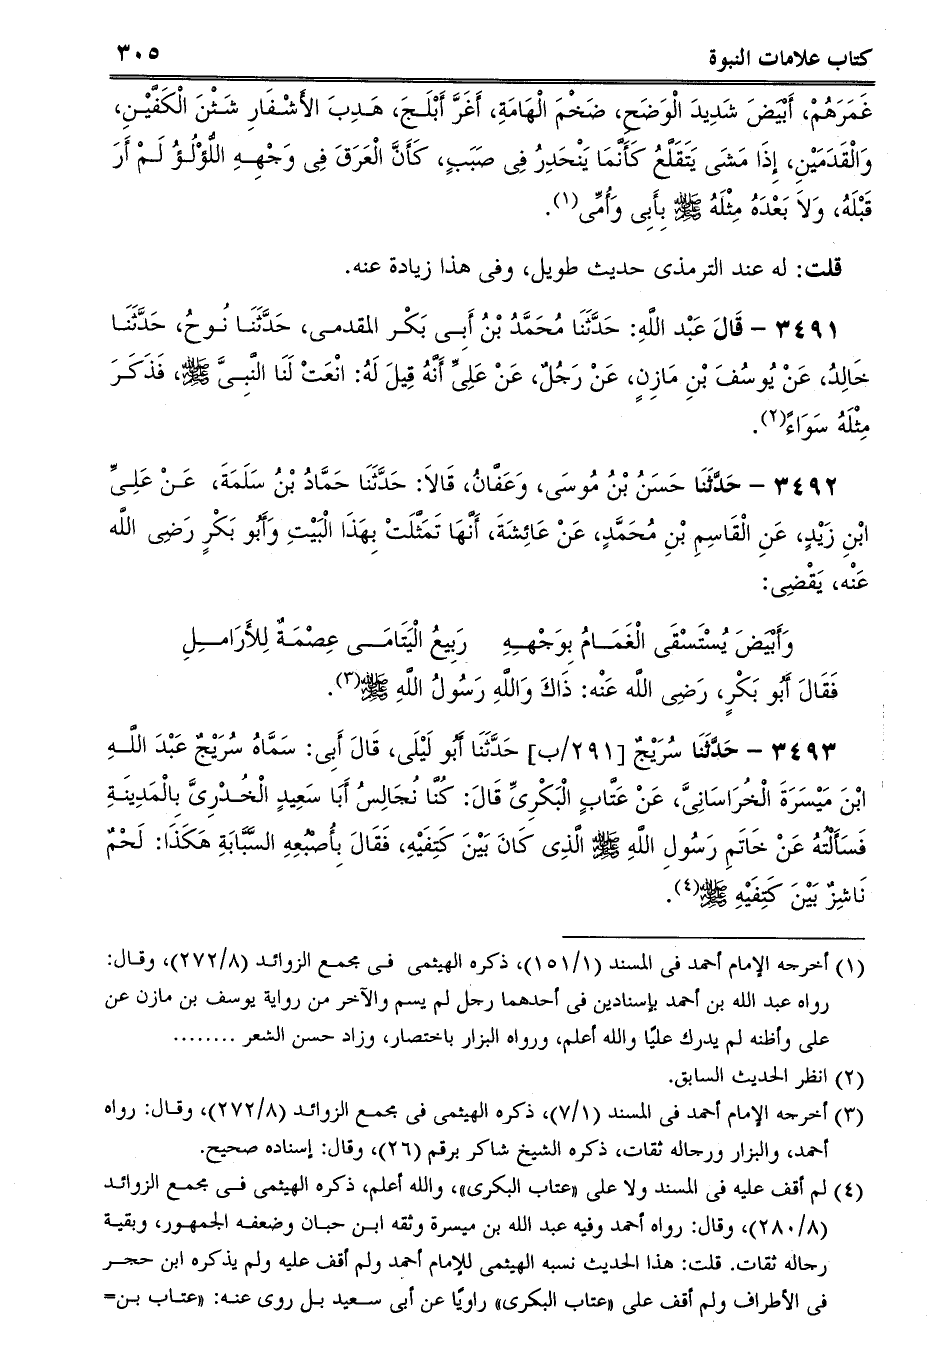 كتاب علامات النبوة
٣٠٥
غَمَرَهُمْ، أَبْيَضَ شَدِيدَ الْوَضَحِ، ضَخْمَ الْهَامَةِ، أَغَرَّ أَبْلَجَ، هَدِبَ الأَشْفَارِ شَثْنَ الْكَفَّيْنِ،
وَالْقَدَمَيْنِ، إِذَا مَشَى يَتَقَلَّعُ كَأَنَّمَا يَنْحَدِرُ فِى صَبَبٍ، كَأَنَّ الْعَرَقَ فِى وَجْهِهِ اللُّؤْلُؤُ لَمْ أَرَ
قَبْلَهُ، وَلاَ بَعْدَهُ مِثْلَهُ ﷺ بِأَبِى وَأُمِّى(١).
قلت: له عند الترمذى حديث طويل، وفى هذا زيادة عنه.
٣٤٩١ – قَالَ عَبْد اللَّهِ: حَدَّثَنَا مُحَمَّدُ بْنُ أَبِى بَكْرٍ المقدمى، حَدَّثَنَا نُوحُ، حَدَّثَنَا
خَالِدُ، عَنْ يُوسُفَ بْنِ مَازِنٍ، عَنْ رَجُلٌ، عَنْ عَلِىٍّ أَنَّهُ قِيلَ لَهُ: انْعَتْ لَنَا النَّبِىَّ ﷺ، فَذَكَرَ
مِثْلَهُ سَوَاءً(٢).
٣٤٩٢ – حَدَّثَنَا حَسَنُ بْنُ مُوسَى، وَعَفَّانُ، قَالاَ: حَدَّثَنَا حَمَّادُ بْنُ سَلَمَةَ، عَنْ عَلِىِّ
ابْنِ زَيْدٍ، عَنِ الْقَاسِمِ بْنِ مُحَمَّدٍ، عَنْ عَائِشَةَ، أَنَّهَا تَمَثَّلَتْ بِهَذَا الْبَيْتِ وَأَبُو بَكْرٍ رَضِى اللَّه
عَنْه، يَقْضِى:
وَأَبْيَضَ يُسْتَسْقَى الْغَمَامُ بِوَجْهِهِ رَبِيعُ الْيَتَامَى عِصْمَةٌ لِلأَرَامِلِ
فَقَالَ أَبُو بَكْرٍ، رَضِى اللَّه عَنْه: ذَاكَ وَاللَّهِ رَسُولُ اللَّهِ ﷺ(٣).
٣٤٩٣ – حَدَّثَنَا سُرَيْجٌ [٢٩١/ب] حَدَّثَنَا أَبُو لَيْلَى، قَالَ أَبِى: سَمَّاهُ سُرَيْجٌ عَبْدَ اللَّهِ
ابْنَ مَيْسَرَةَ الْخُرَاسَانِىَّ، عَنْ عَتَّابٍ الْبَكْرِىِّ قَالَ: كُنَّا نُجَالِسُ أَبَا سَعِيدٍ الْخُدْرِىَّ بِالْمَدِينَةِ
فَسَأَلْتُهُ عَنْ خَاتَمِ رَسُولِ اللَّهِ ﷺ الَّذِى كَانَ بَيْنَ كَتِفَيْهِ، فَقَالَ بِأُصْبُعِهِ السَّبَّابَةِ هَكَذَا: لَحْمٌ
نَاشِزٌ بَيْنَ كَتِفَيْهِ ﷺ(٤).
(١) أخرجه الإمام أحمد فى المسند (١٥١/١)، ذكره الهيثمى فى مجمع الزوائد (٢٧٢/٨)، وقال:
رواه عبد الله بن أحمد بإسنادين فى أحدهما رجل لم يسم والآخر من رواية يوسف بن مازن عن
على وأظنه لم يدرك عليًا والله أعلم، ورواه البزار باختصار، وزاد حسن الشعر ........
(٢) انظر الحديث السابق.
(٣) أخرجه الإمام أحمد فى المسند (٧/١)، ذكره الهيثمى فى مجمع الزوائد (٢٧٢/٨)، وقال: رواه
أحمد، والبزار ورجاله ثقات، ذكره الشيخ شاكر برقم (٢٦)، وقال: إسناده صحيح.
(٤) لم أقف عليه فى المسند ولا على «عتاب البكرى»، والله أعلم، ذكره الهيثمى فى مجمع الزوائد
(٢٨٠/٨)، وقال: رواه أحمد وفيه عبد الله بن ميسرة وثقه ابن حبان وضعفه الجمهور، وبقية
رجاله ثقات. قلت: هذا الحديث نسبه الهيثمى للإمام أحمد ولم أقف عليه ولم يذكره ابن حجر
فى الأطراف ولم أقف على «عتاب البكرى» راويًا عن أبى سعيد بل روى عنه: «عتاب بن=